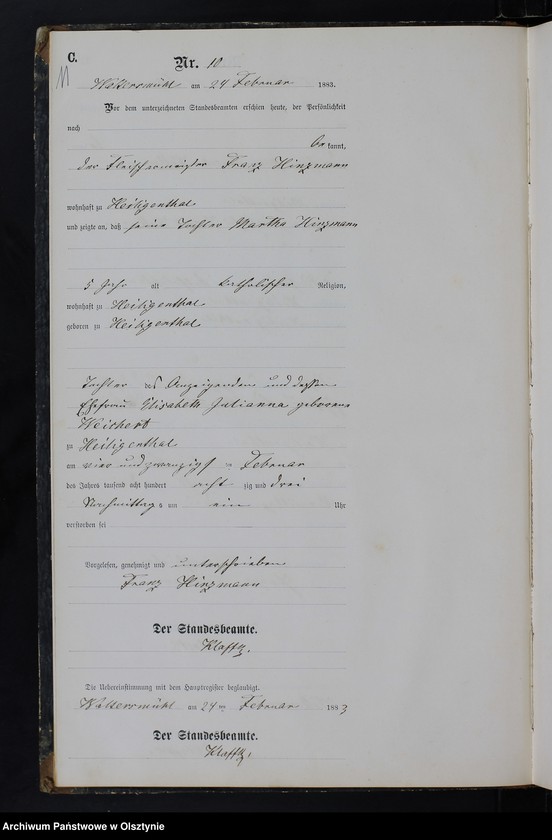 C.
11
Nr. 10
Woltersmühl am 24 Februar 1883.
Vor dem unterzeichneten Standesbeamten erschien heute, der Persönlichkeit
nach
be kannt,
der Fleischermeister Franz Hinzmann
wohnhaft zu Heiligenthal
und zeigte an, daß seine Tochter Martha Hinzmann
5 Jahr alt katholischer Religion,
wohnhaft zu Heiligenthal
geboren zu Heiligenthal
Tochter des Anzeigenden und dessen
Ehefrau Elisabeth Julianna geborene
Weichert
zu Heiligenthal
am vier und zwanzigst en Februar
des Jahres tausend acht hundert acht zig und drei
Nachmittag s um ein Uhr
verstorben sei
Vorgelesen, genehmigt und unterschrieben
Franz Hinzmann
Der Standesbeamte.
Klafft.
Die Uebereinstimmung mit dem Hauptregister beglaubigt.
Woltersmühl am 24ten Februar 1883
Der Standesbeamte.
Klafft.
Archiwum Państwowe w Olsztynie